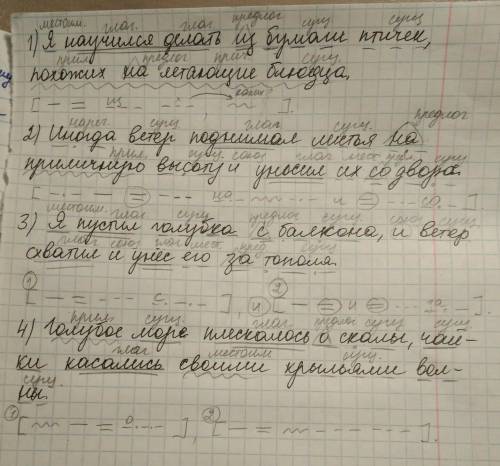 местоим. глаг. глаг предлог сущ сущ
1) Я научился делать из бумаги птичек,
прил. предлог прил. сущ.
похожих на летающие блюдца.
какие?
[ — = из , ].
нареч. сущ глаг сущ. предлог
2) Иногда ветер поднимал листья на
прил. сущ. союз глаг мест. сущ.
приличную высоту и уносил их со двора.
[ — = на и = со ].
местоим. глаг сущ предлог сущ. союз сущ
3) Я пустил голубка с балкона, и ветер
глаг союз глаг мест. пред сущ.
схватил и унёс его за тополя.
1 2
[ — = с ], и [ — = и = за ].
прил. сущ. глаг предлог сущ сущ
4) Голубое море плескалось о скалы, чай-
глаг. местоим сущ.
ки касались своими крыльями вол-
сущ.
ны.
1 2
[ — = о ], [ — = ].